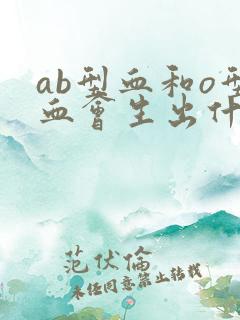 ab型血和o型
血会生出什
范伏倫
未经同意禁止转载